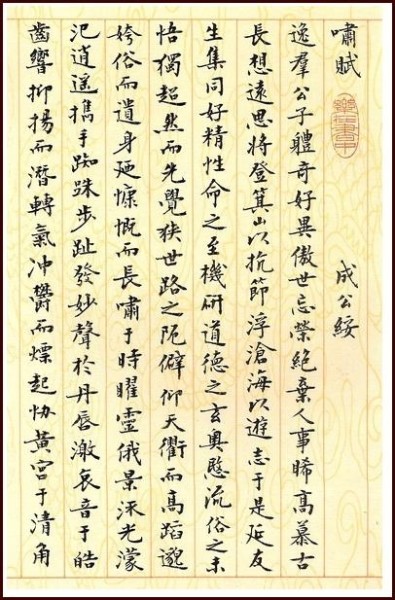 嘯賦 成公綏
逸羣公子體奇好異傲世忘榮絶棄人事睎高慕古
長想遠思將登箕山以抗節浮滄海以遊志于是延友
生集同好精性命之至機研道德之玄奧愍流俗之未
悟獨超然而先覺狹世路之阨僻仰天衢而高蹈邈
姱俗而遺身廼慷慨而長嘯于時曜靈俄景流光濛
汜逍遥攜手踟跦步趾發妙聲於丹唇激哀音于皓
齒響抑揚而潛轉氣冲欝而熛起協黃宮于清角